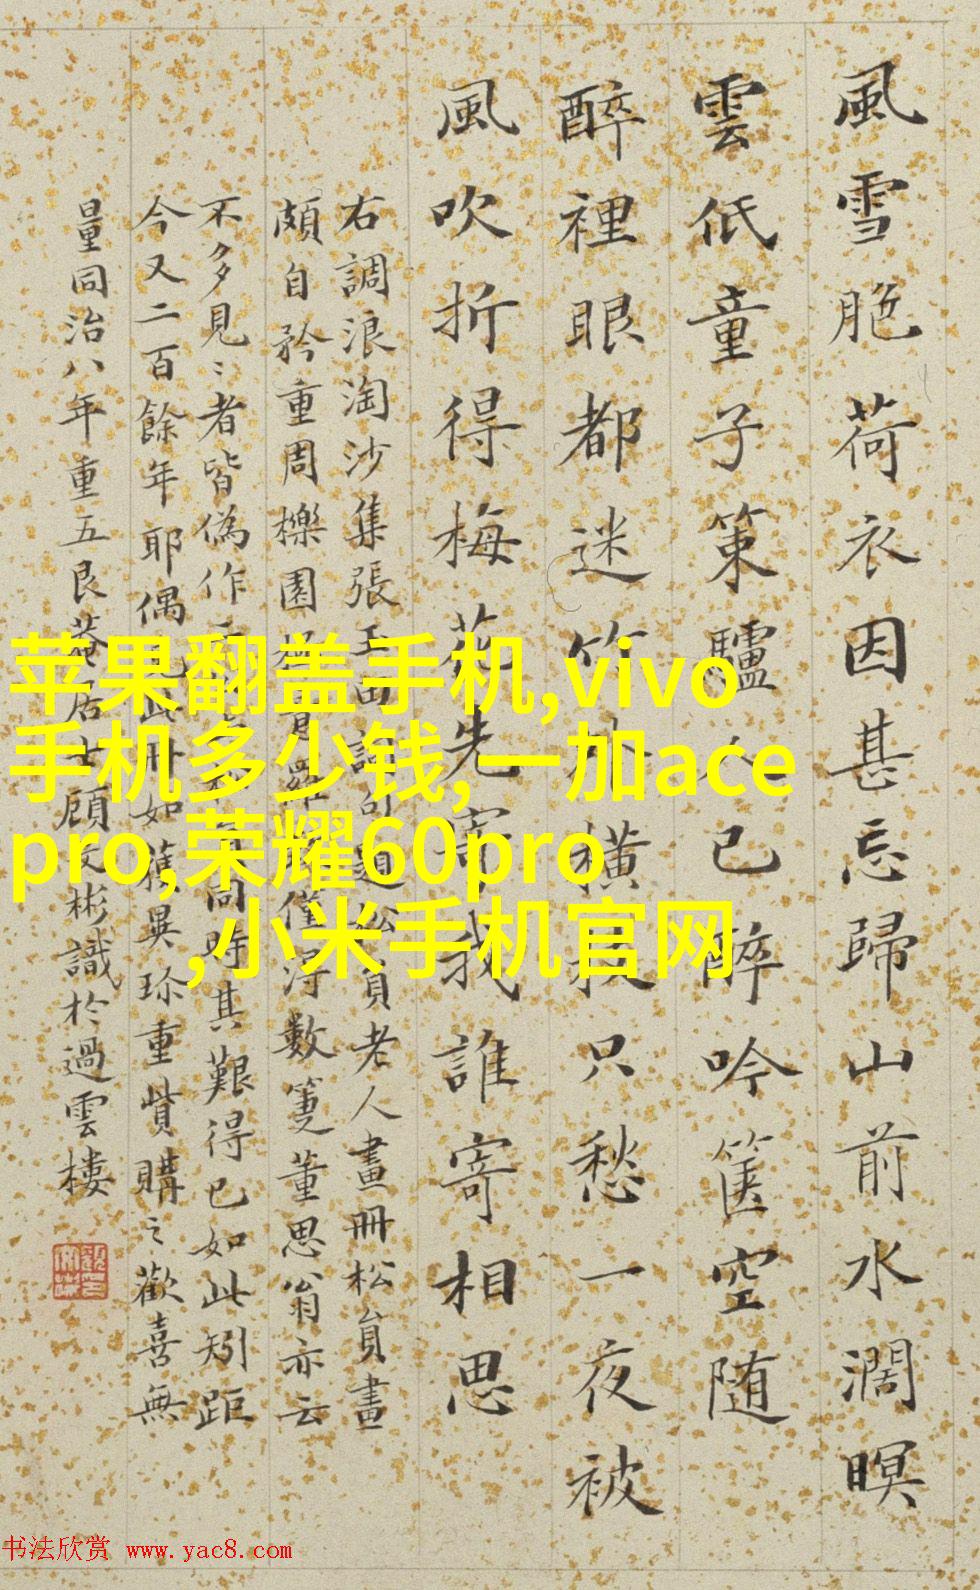 風雪脃荷衣因甚忘歸山前水濶暝
雲低童子策驢人已醉吟箧空随
醉裡眼都迷竹外橫枝只愁一夜被
風吹折得梅花先寄我誰寄相思
右調浪淘沙集張玉田詞句題松員老人畫冊松員畫
頗自矜重周櫟園極賞羅僅得數筆董思翁亦云
不多見〻者皆偽作同時其艱得已如此矧距
今又二百餘年耶偶見此冊如獲異珍重貲購之歡喜無
量同治八年重五艮菴居士顧文彬識於過雲樓
苹果翻盖手机,vivo
手机多少钱,一加ace
pro,荣耀60pro
,小米手机官网
书法欣赏 www.yac8.com